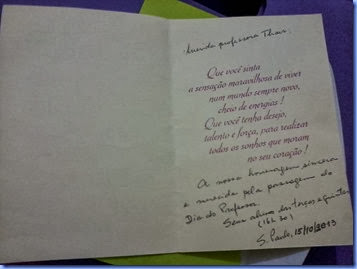 Querida professora Thais,
Que você sinta
a sensação maravilhosa de viver
num mundo sempre novo,
cheio de energias!
Que você tenha desejo,
talento e força, para realizar
todos os sonhos que moram
no seu coração!
A nossa homenagem sincera
e merecida pela passagem do
Dia do Professor.
Seus alunos das terças e quintas
(16h30)
S. Paulo, 15/10/2013